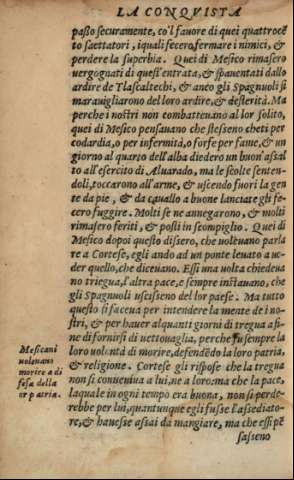 LA CONQVISTA
passo securamente, co'l fauore di quei quattrocē
to saettatori, iquali fecero fermare i nimici, &
perdere la superbia. Quei di Mesico rimasero
vergognati di quest'entrata, & spauentati dallo
ardire de Tlascaltechi, & anco gli Spagnuoli si
marauigliarono del loro ardire, & desterità. Ma
perche i nostri non combatteuano al lor solito,
quei di Mesico pensauano che stessero cheti per
codardia, o per infermità, o forse per fame, & un
giorno al quarto dell'alba diedero un buon'assal
to all'esercito di Aluarado, ma le scolte senten-
doli, toccarono all'arme, & uscendo fuori la gen
te da pie, & da cauallo a buone lanciate gli fe-
cero fuggire. Molti se ne annegarono, & molti
rimasero feriti, & posti in scompiglio. Quei di
Mesico dopoi questo dissero, che uoleuano parla
re a Cortese, egli ando ad un ponte leuato a ue-
der quello, che diceuano. Essi una uolta chiedeua
no triegua, l'altra pace, e sempre instauano, che
gli Spagnuoli uscissero del lor paese. Ma tutto
questo si faceua per intendere la mente de i no-
stri, & per hauer alquanti giorni di tregua a fi-
ne di fornirsi di uettouaglia, perche fu sempre la
loro uolontà di morire, defendēdo la loro patria,
& religione. Cortese gli rispose che la tregua
non si conueniua a lui, ne a loro: ma che la pace,
laquale in ogni tempo era buona, non si perde-
rebbe per lui, quantunque egli fusse l'assediato-
re, & hauesse assai da mangiare, ma che essi pē
sasseno
Mesicani
uoleuano
morire a di
fesa della
lor patria.